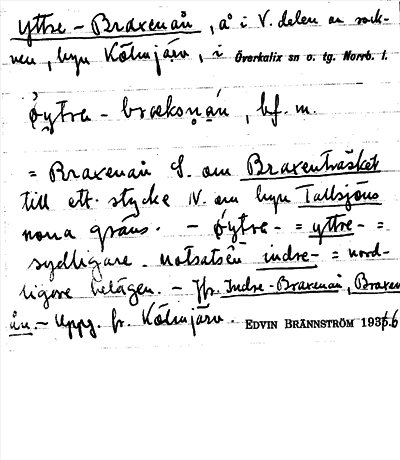 Yttre-Braxenån, å i V. delen av sock-
nen, byn Kölmjärv, i Överkalix sn o. tg. Norrb. l.
ǿytrə - bræksṇạń, bf. m.
= Braxenån S. om Braxenträsket
till ett stycke N. om byn Tallsjöns
norra gräns. - ǿytrə- = yttre- =
sydligare. motsatsen indre- = nord-
ligare belägen. - Jfr Indre-Braxenån, Braxen-
ån. - Uppg. fr. Kölmjärv. EDVIN BRÄNNSTRÖM 1935.6